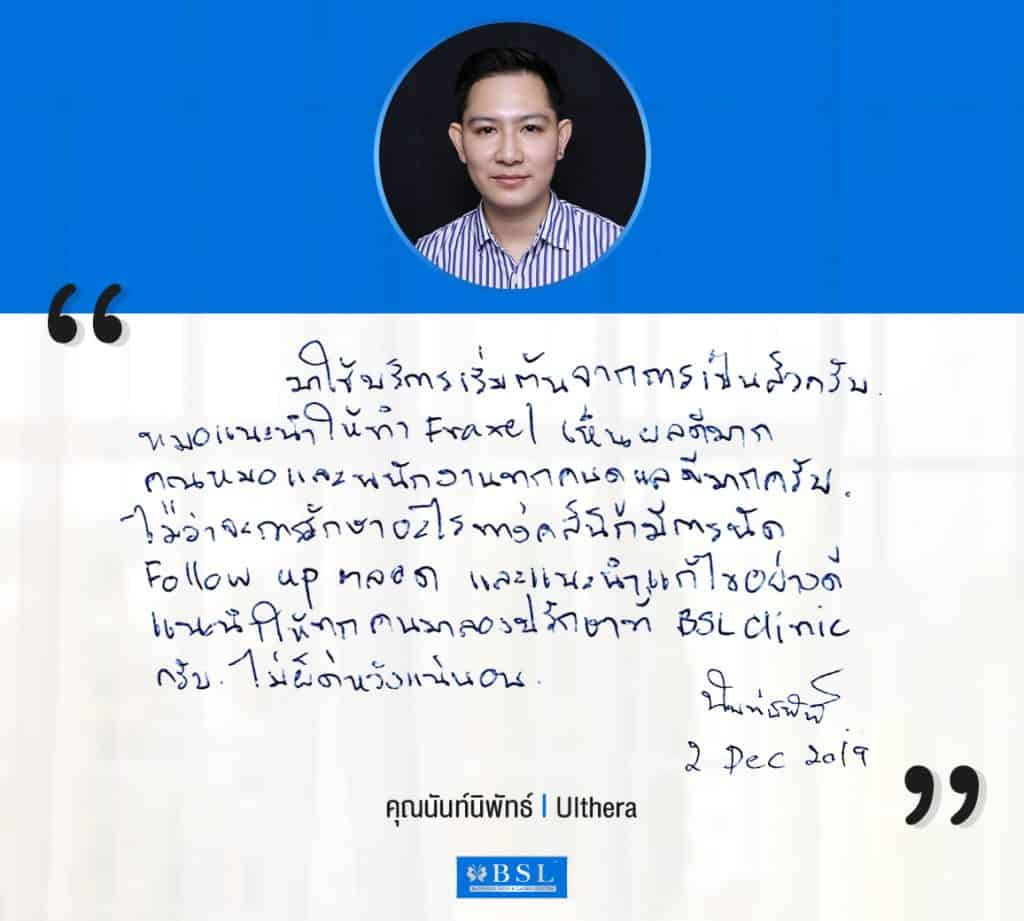 มาใช้บริการเริ่มต้นจากการเป็นสิวครับ.
หมอแนะนำให้ทำ Fraxel เห็นผลดีมาก
คุณหมอและพนักงานทุกคนดูแลดีมากครับ.
ไม่ว่าจะการรักษาอะไรทางคลีนิกก็มีการนัด
Follow up ตลอด และแนะนำแก้ไขอย่างดี
แนะนำให้ทุกคนมาลอง รักษาที่ BSL clinic
ครับ. ไม่ผิดหวังแน่นอน.
2 Dec 2019
คุณนันท์นิพัทธ์ | Ulthera
BSL